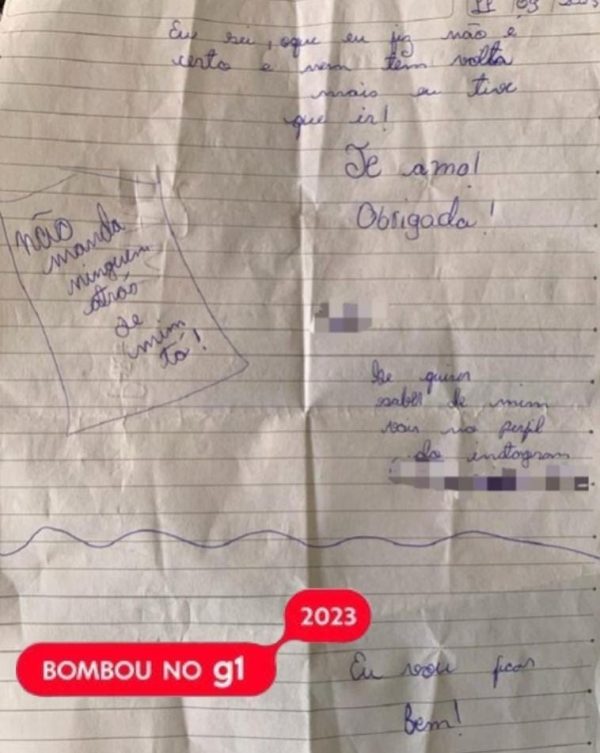 11 09
Eu sei, oque eu fiz não é
certo e nem tem volta
mais eu tive
que ir!
Te amo!
Obrigada!
não
manda
ninguem
atrás
de
mim
tá!
Se quiser
saber de mim
vou no perfil
do instagram
2023
BOMBOU NO g1
Eu vou ficar
bem!